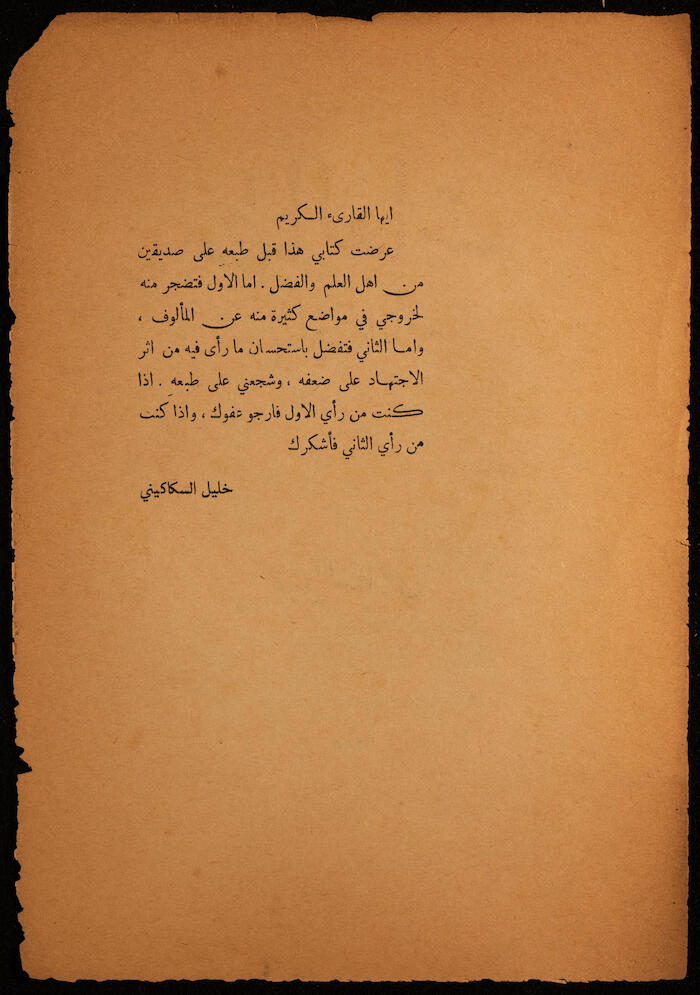 ايها القارىء الكريم
عرضت كتابي هذا قبل طبعهِ على صديقين
من اهل العلم والفضل . اما الاول فتضجر منه
لخروجي في مواضع كثيرة منه عن المألوف ،
واما الثاني فتفضل باستحسان ما رأى فيه من اثر
الاجتهاد على ضعفه ، وشجعني على طبعهِ . اذا
كنت من رأي الاول فارجو عفوك ، واذا كنت
من رأي الثاني فأشكرك
خليل السكاكيني